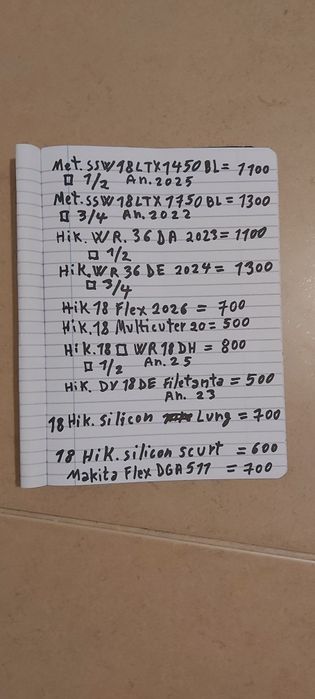 Met. SSW 18LTX 1450 BL = 1100
□ 1/2 An. 2025
Met. SSW 18LTX 1750 BL = 1300
□ 3/4 An. 2022
Hik. WR. 36 DA 2023 = 1100
□ 1/2
Hik. WR 36 DE 2024 = 1300
□ 3/4
Hik 18 Flex 2026 = 700
Hik. 18 Multicuter 20 = 500
Hik. 18 □ WR 18DH = 800
□ 1/2 An. 25
Hik. DV 18 DE Filetanta = 500
An. 23
18 Hik. Silicon Lung = 700
18 Hik. silicon scurt = 600
Makita Flex DGA 511 = 700